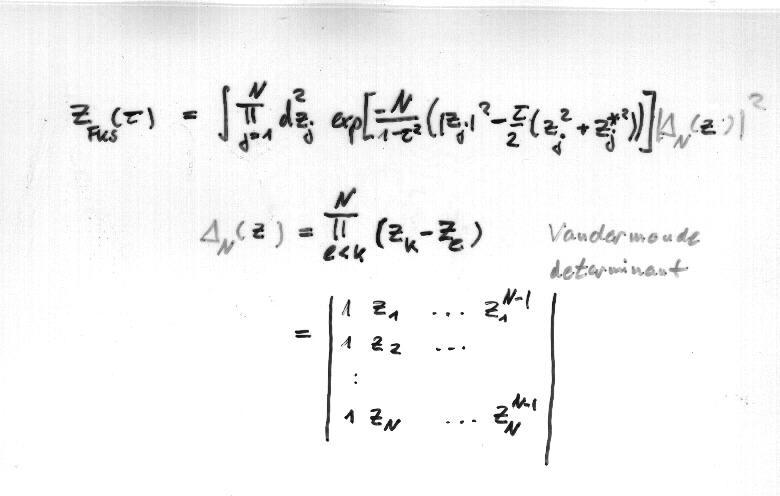 Z_FKS(τ) = ∫ ∏_{j=1}^{N} d²z_j exp[-N/(1-τ²) (|z_j|² - τ/2 (z_j² + z_j*²))] |Δ_N(z)|²
Δ_N(z) = ∏_{l<k}^{N} (z_k - z_l) Vandermonde
determinant
= | 1 z_1 ... z_1^{N-1} |
1 z_2 ...
:
1 z_N ... z_N^{N-1}